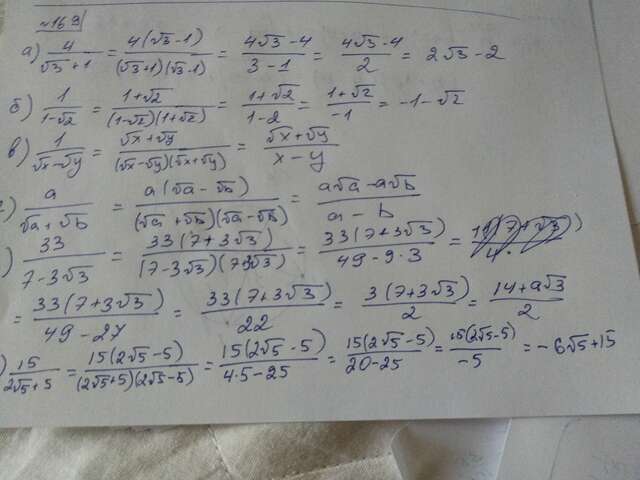 №169
а) 4/(√3+1) = 4(√3-1)/((√3+1)(√3-1)) = (4√3-4)/(3-1) = (4√3-4)/2 = 2√3-2
б) 1/(1-√2) = (1+√2)/((1-√2)(1+√2)) = (1+√2)/(1-2) = (1+√2)/-1 = -1-√2
в) 1/(√x-√y) = (√x+√y)/((√x-√y)(√x+√y)) = (√x+√y)/(x-y)
a/(√a+√b) = a(√a-√b)/((√a+√b)(√a-√b)) = (a√a-a√b)/(a-b)
33/(7-3√3) = 33(7+3√3)/((7-3√3)(7+3√3)) = 33(7+3√3)/(49-9·3) =
= 33(7+3√3)/(49-27) = 33(7+3√3)/22 = 3(7+3√3)/2 = (14+9√3)/2
15/(2√5+5) = 15(2√5-5)/((2√5+5)(2√5-5)) = 15(2√5-5)/(4·5-25) = 15(2√5-5)/(20-25) = 15(2√5-5)/-5 = -6√5+15